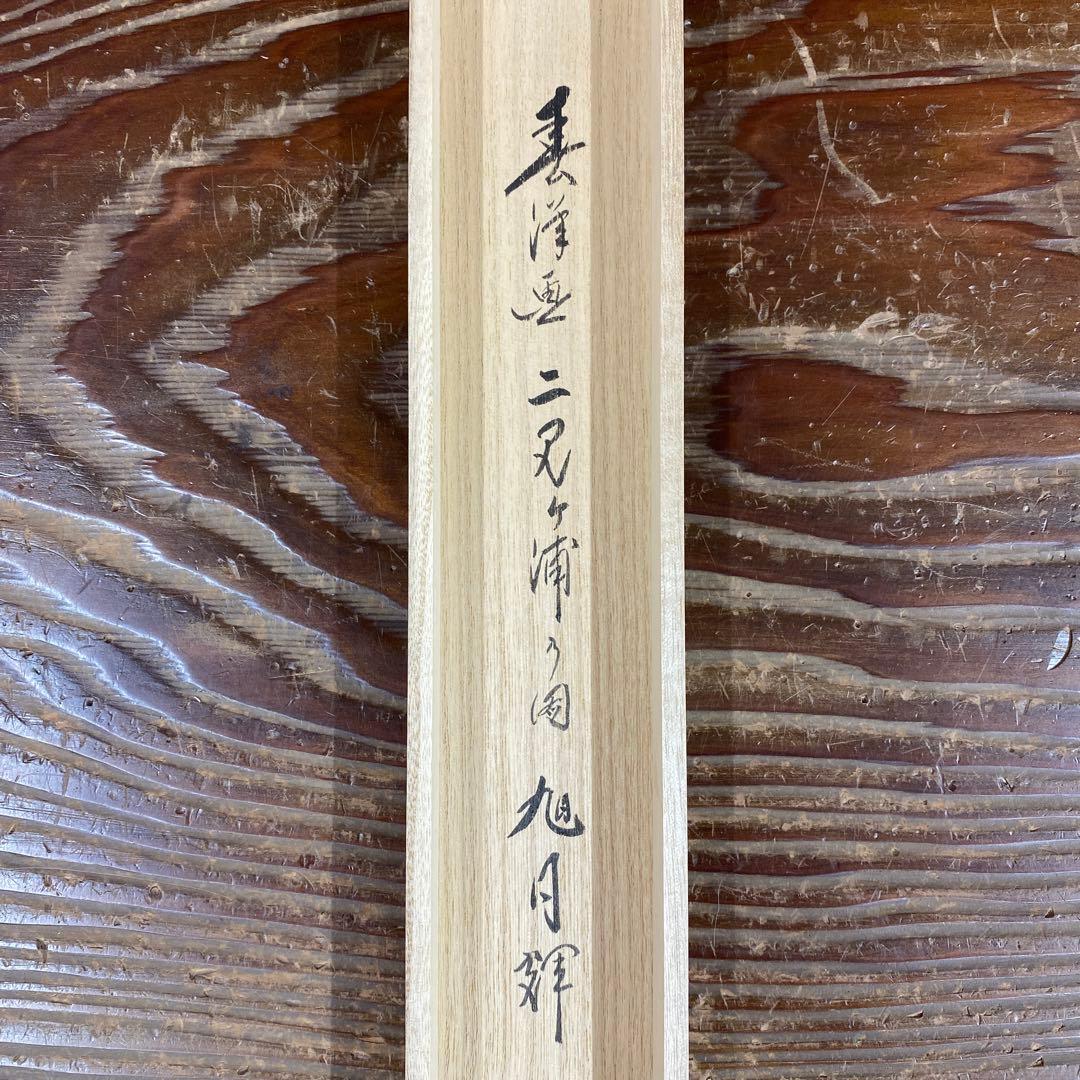 春洋画 二見ヶ浦之図 旭月輝